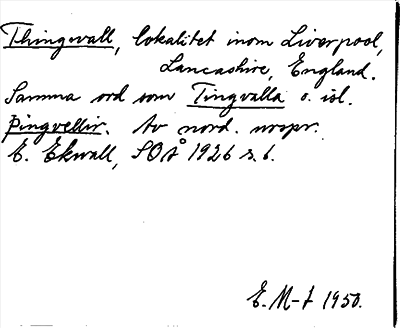 Thingwall, lokalitet inom Liverpool,
Lancashire, England.
Samma ord som Tingvalla o. isl.
Þingvellir. Av nord. urspr.
E. Ekwall, SOÅ 1926 s. 6.
E. M-t 1950.